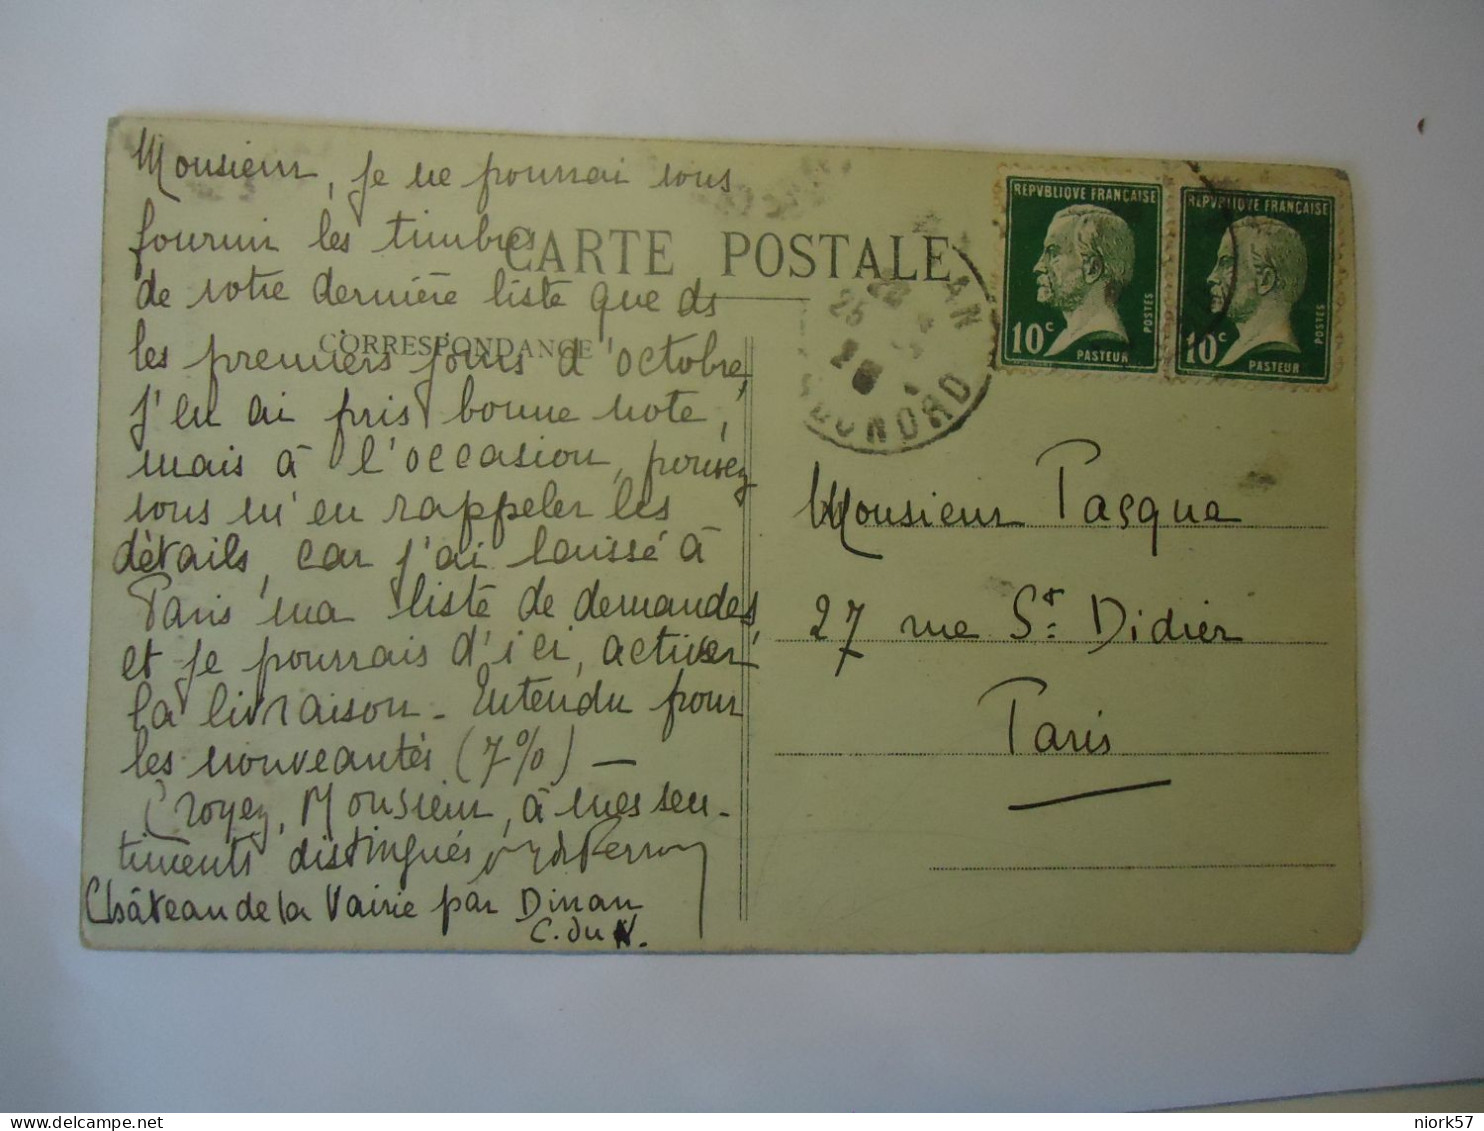 Monsieur, je ne pourrai vous
fournir les timbres
de votre dernière liste que ds
les premiers jours d'octobre,
j'en ai pris bonne note,
mais à l'occasion, pouvez
vous m'en rappeler les
détails, car j'ai laissé à
Paris ma liste de demandes,
et je pourrais d'ici, activer
la livraison - Entendu pour
les nouveautés (7%) —
Croyez, Monsieur, à mes sen-
timents distingués
Château de la Vairie par Dinan
C. du N.
CARTE POSTALE
CORRESPONDANCE
REPVBLIQUE FRANÇAISE
10c
POSTES
PASTEUR
REPVBLIQUE FRANÇAISE
10c
POSTES
PASTEUR
DU NORD
Monsieur Pasqua
27 rue St Didier
Paris
niork57